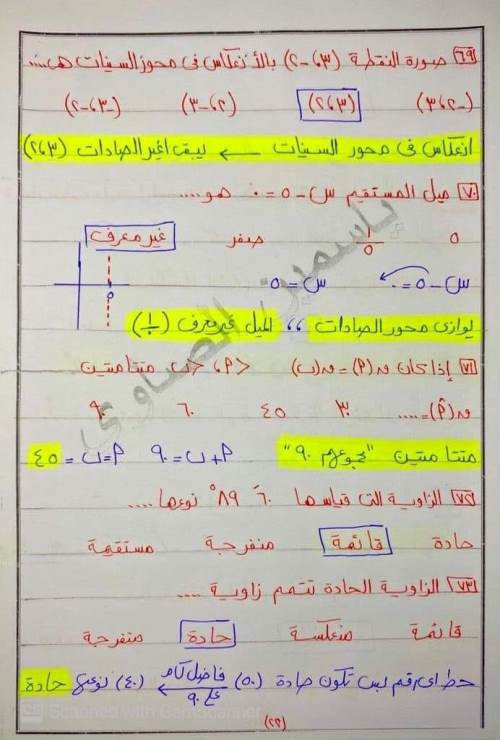 ٦٩ صورة النقطة (٣، -٢) بالانعكاس فى محور السينات هى ....
(-٣، ٢) (٣، ٢) (٢، -٣) (-٣، -٢)
انعكاس فى محور السينات ← يبقى اغير الصادات (٣، ٢)
٧٠ ميل المستقيم س - ٥ = ٠ هو ....
٥ ١/٥ صفر غير معرف
س - ٥ = ٠ س = ٥
٥
يوازى محور الصادات ،، الميل غير معرف (١/٠)
٧١ إذا كان ق(P) = ق(ب) >P، >ب متتامتين
ق(P̂) = .... ٣٠ ٤٥ ٦٠ ٩٠
متتامتين "مجموعهم ٩٠" P + ب = ٩٠ P = ب = ٤٥
٧٢ الزاوية التى قياسها ٦٠َ ٨٩° نوعها ....
حادة قائمة منفرجة مستقيمة
٧٣ الزاوية الحادة تتمم زاوية ....
قائمة منعكسة حادة منفرجة
حط اى رقم بس تكون حادة (٥٠) فاضل كام على ٩٠ ← (٤٠) نوعها حادة
Scanned with CamScanner
(٢٢)
ياسمين الصاوي